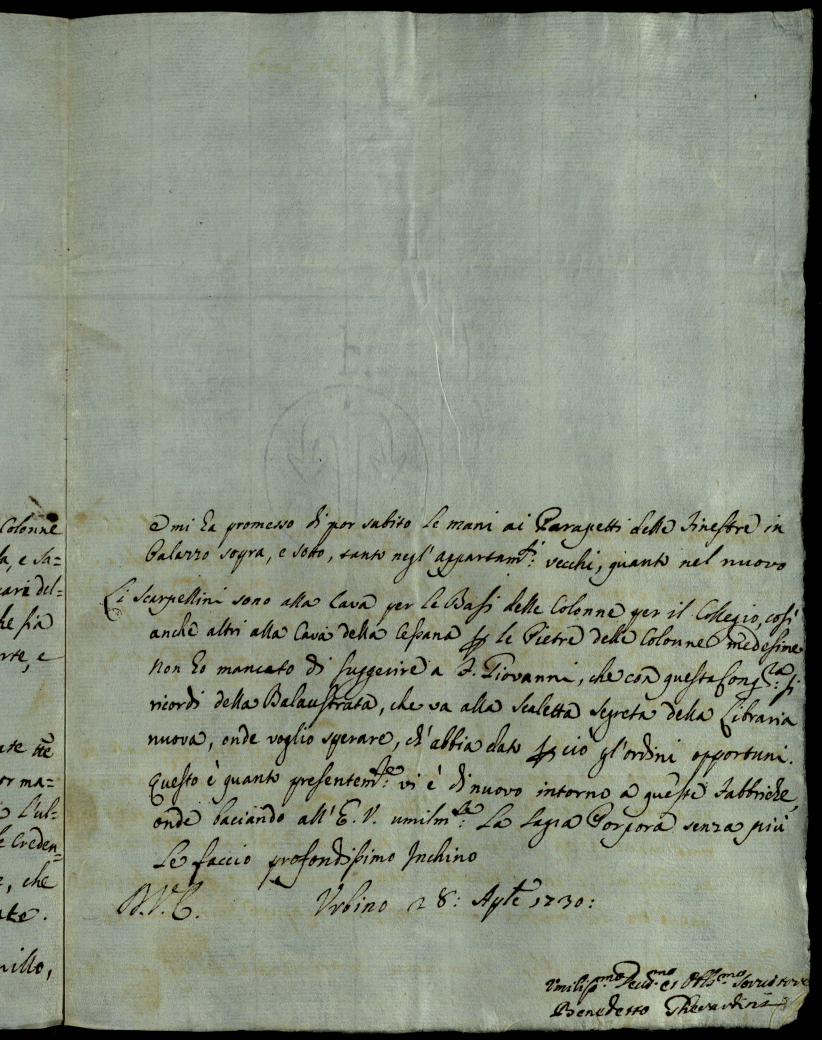 Colonne
la, e sa=
care del=
he sia
rte, e
ate tre
or ma=
L'ul=
e Creden=
e, che
ate.
nillo,
e mi ha promesso di por subito le mani ai Parapetti delle Finestre in
Palazzo sopra, e sotto, tanto negl'appartam.ti: vecchi, quanto nel nuovo
Li Scarpellini sono alla Cava per le Basi delle Colonne per il Collegio, così
anche altri alla Cava della Cesana le Pietre delle Colonne medesime
Non ho mancato di suggerire a Giovanni, che con questa si
ricordi della Balaustrata, che va alla scaletta segreta della Libraria
nuova, onde voglio sperare, ch'abbia dato ciò gl'ordini opportuni.
Questo è quanto presentem.te: vi è di nuovo intorno a queste Fabbriche,
onde baciando all'E. V. umilm.te: la Sagra Porpora senza più
le faccio profondissimo Inchino
Urbino 28: Aple 1730:
Umiliss.mo Obblig.mo Servitore
Benedetto Gherardini